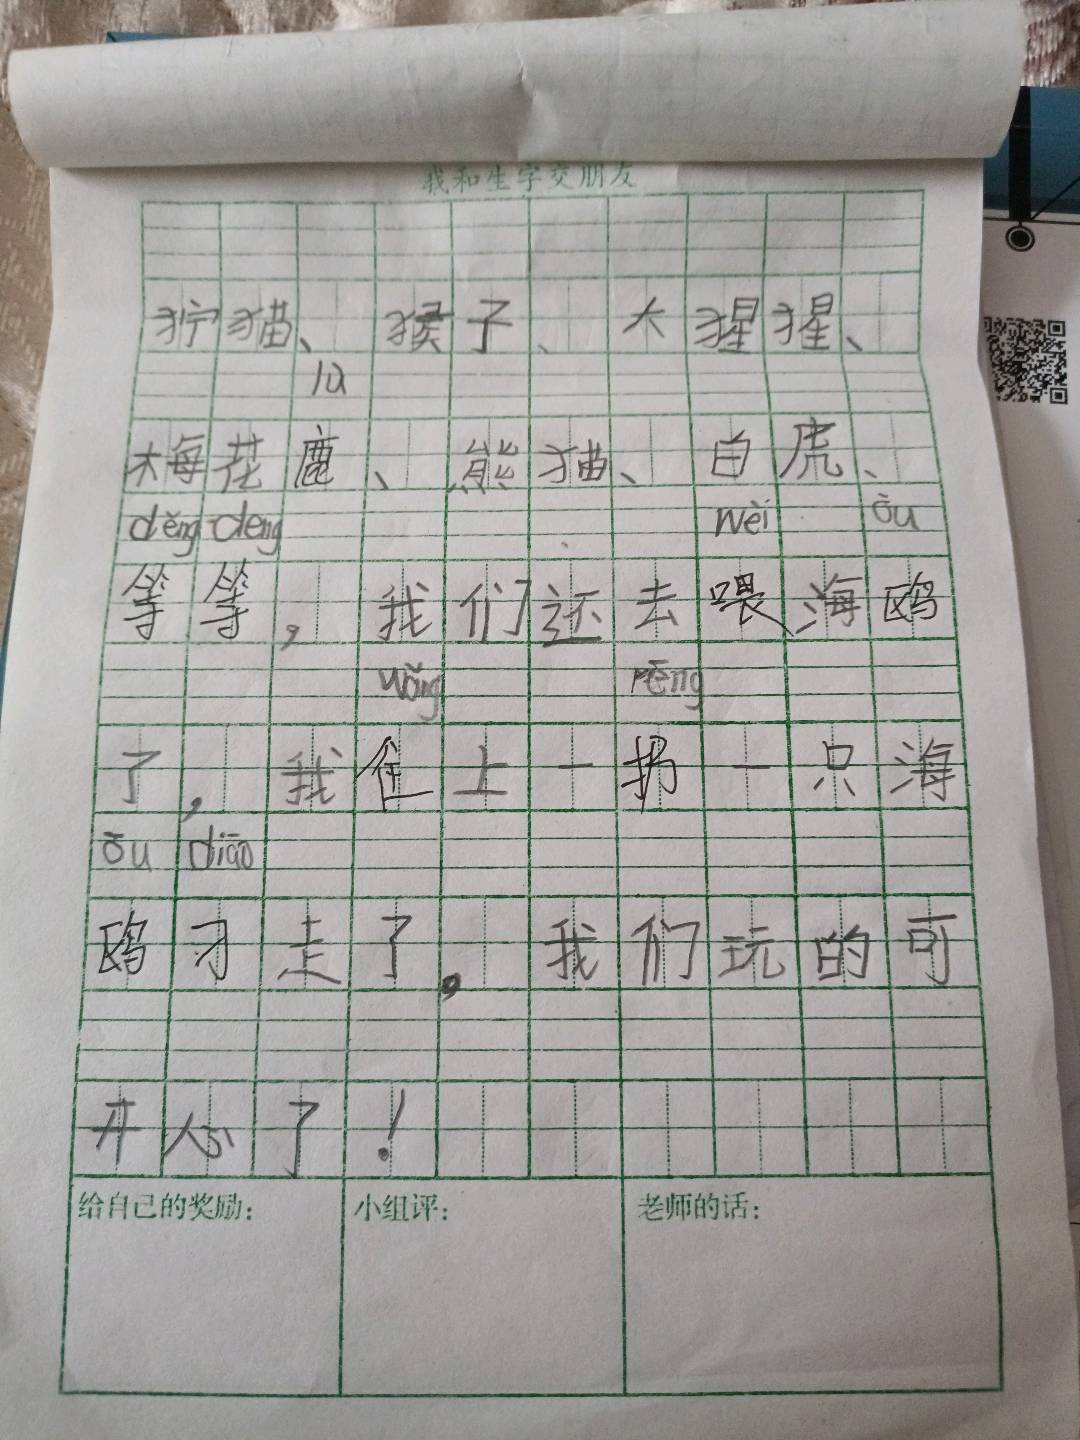 我和生字交朋友
狞猫、猴子、大猩猩、
lù
梅花鹿、熊猫、白虎、
děng deng wèi ōu
等等，我们还去喂海鸥
wǎng rēng
了，我往上一扔一只海
ōu diāo
鸥刁走了。我们玩的可
开心了！
给自己的奖励： 小组评： 老师的话：